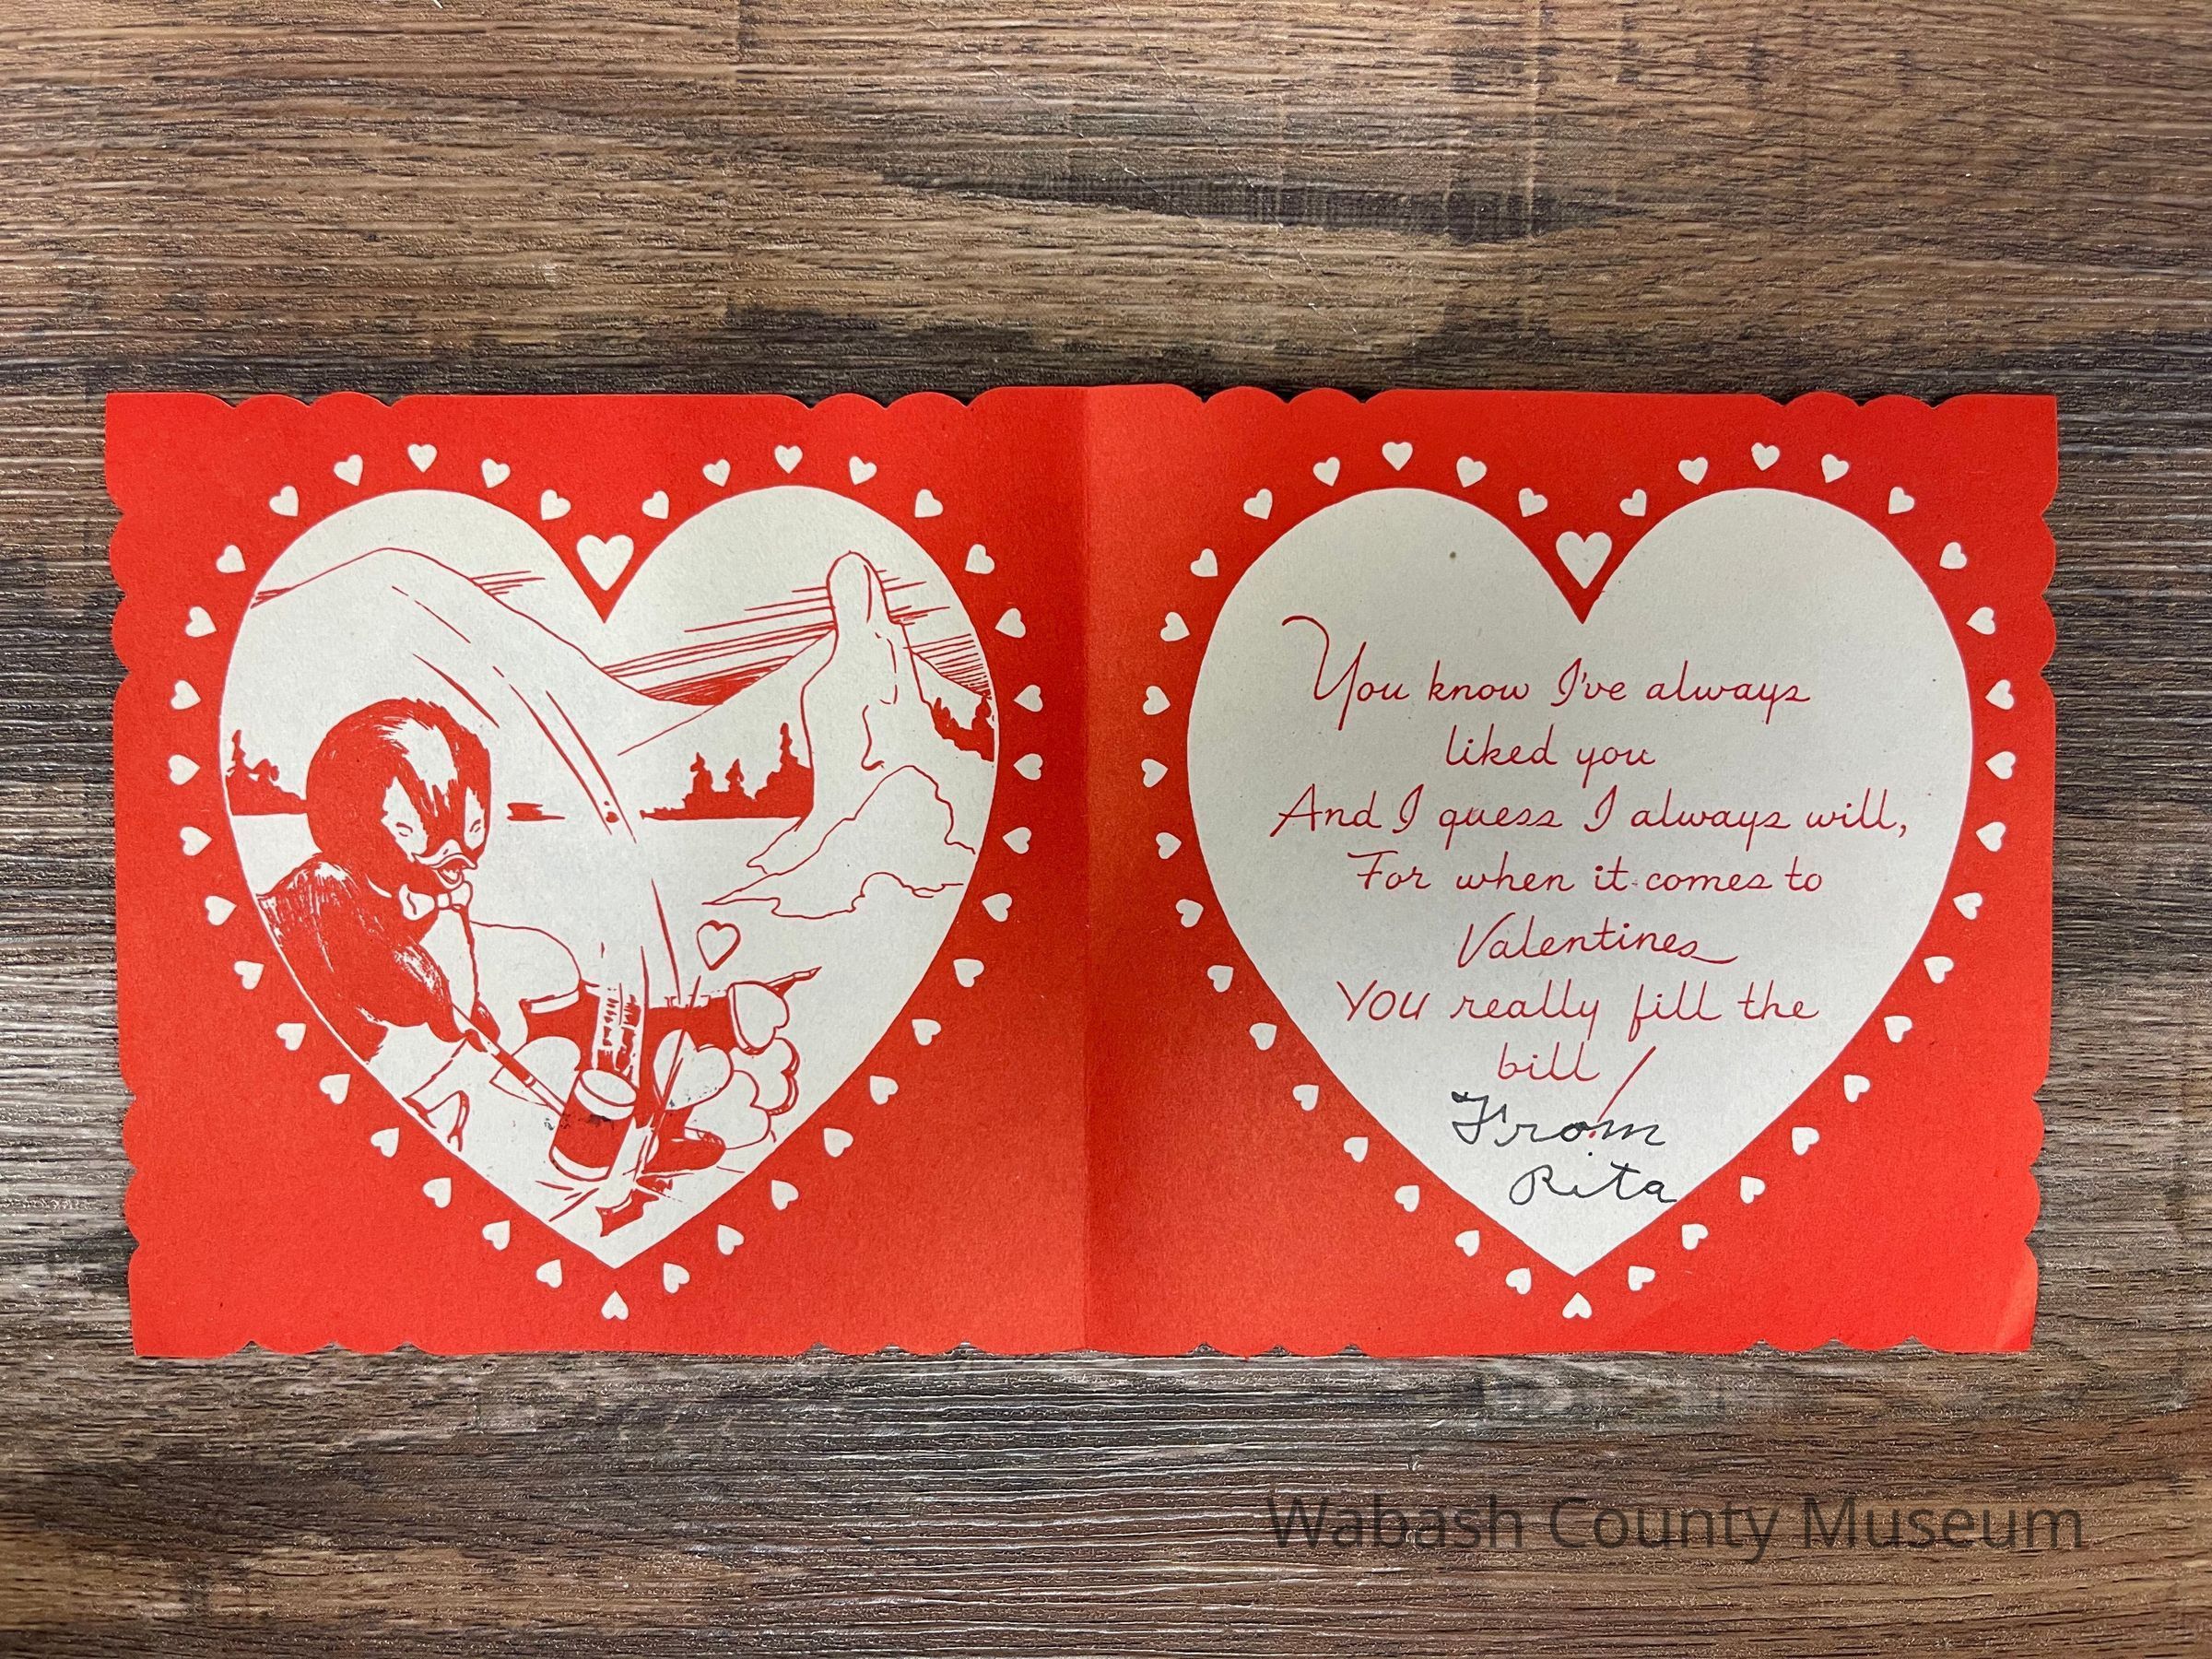 You know I've always
liked you
And I guess I always will,
For when it comes to
Valentines
YOU really fill the
bill!
From
Rita
Wabash County Museum